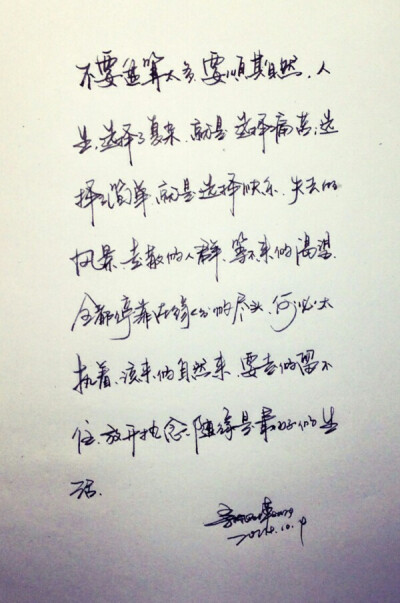 不要盘算太多,要顺其自然,人
生,选择了复杂,就是选择痛苦;选
择了简单,就是选择快乐。失去的
风景,走散的人群,等不来的渴望,
全都停靠在缘分的尽头,何必太
执着,该来的自然来,要走的留不
住,放开执念,随缘是最好的生
活。
10.9